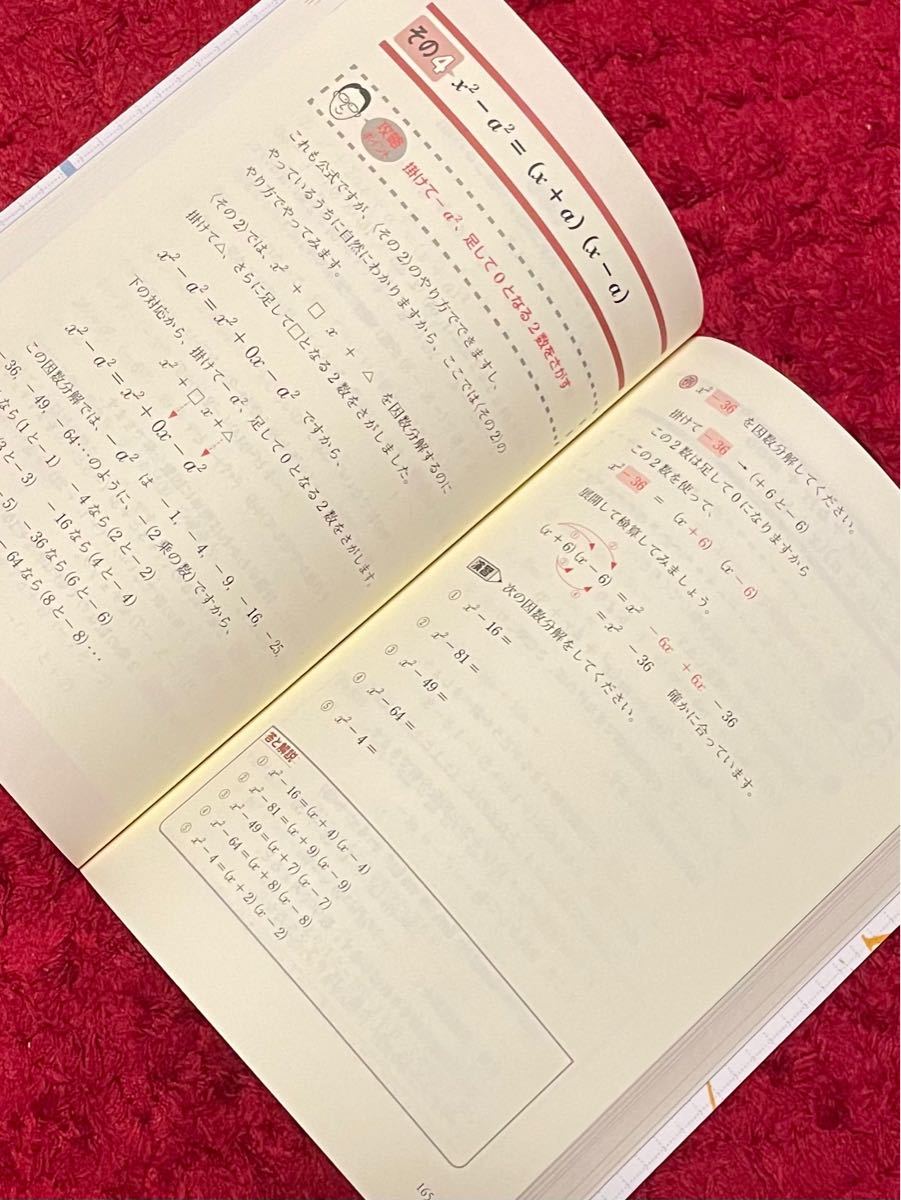 その4 x² − a² = (x + a) (x − a)
攻略ポイント 掛けて−a²、足して0となる2数をさがす
これも公式ですが、(その2)のやり方でできますし、
やっているうちに自然にわかりますから、ここでは(その2)の
やり方でやってみます。
(その2)では、x² + □ x + △ を因数分解するのに
掛けて△、さらに足して□となる2数をさがしました。
x² − a² = x² + 0x − a² ですから、
下の対応から、掛けて−a²、足して0となる2数をさがします。
x² + □ x + △
x² − a² = x² + 0x − a²
この因数分解では、−a² は −1, −4, −9, −16, −25,
−36, −49, −64…のように、−(2乗の数)ですから、
なら(1と−1) −4なら(2と−2)
(3と−3) −16なら(4と−4)
−5) −36なら(6と−6)
−64なら(8と−8)…
例 x² −36 を因数分解してください。
掛けて −36 → (+6と−6)
この2数は足して0になりますから
この2数を使って、
x² −36 = (x + 6) (x − 6)
展開して検算してみましょう。
① ② ③ ④
(x + 6) (x − 6) = x² − 6x + 6x − 36
= x² − 36 確かに合っています。
演習 次の因数分解をしてください。
① x² − 16 =
② x² − 81 =
③ x² − 49 =
④ x² − 64 =
⑤ x² − 4 =
答と解説
① x² − 16 = (x + 4) (x − 4)
② x² − 81 = (x + 9) (x − 9)
③ x² − 49 = (x + 7) (x − 7)
④ x² − 64 = (x + 8) (x − 8)
⑤ x² − 4 = (x + 2) (x − 2)
165